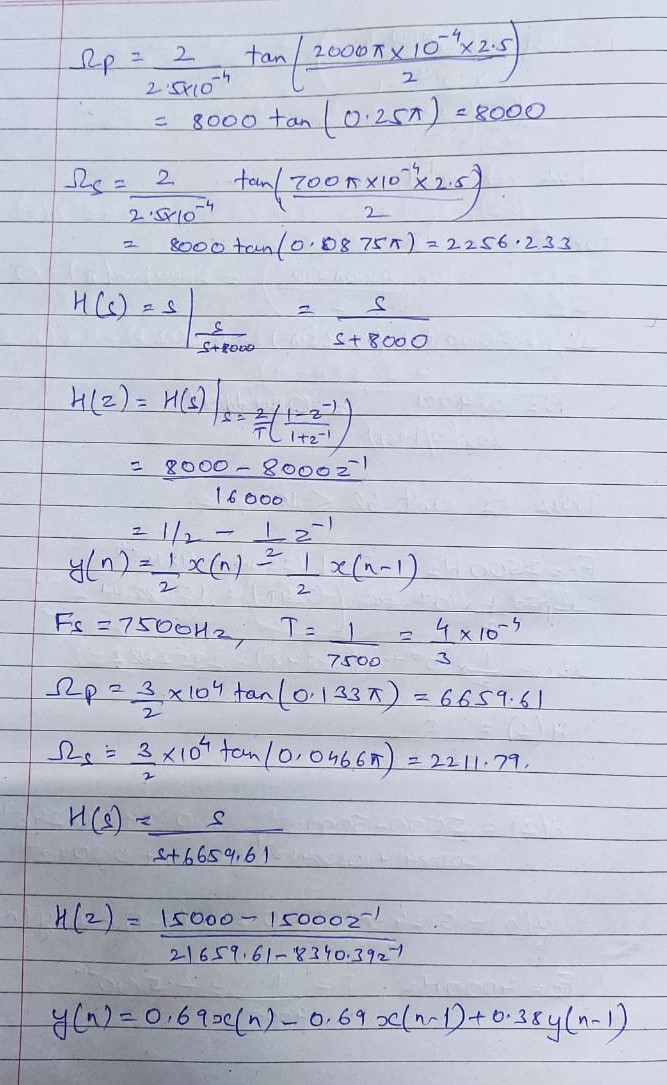 Ωp = 2/(2.5x10⁻⁴) tan(2000π x 10⁻⁴ x 2.5 / 2)
= 8000 tan(0.25π) = 8000
Ωs = 2/(2.5x10⁻⁴) tan(700π x10⁻⁴ x 2.5 / 2)
= 8000 tan(0.0875π) = 2256.233
H(s) = s | s/(s+8000) = s/(s+8000)
H(z) = H(s) | s = 2/T (1-z⁻¹ / 1+z⁻¹)
= (8000 - 8000z⁻¹)/16000
= 1/2 - 1/2 z⁻¹
y(n) = 1/2 x(n) - 1/2 x(n-1)
Fs = 7500Hz, T = 1/7500 = 4/3 x 10⁻⁴
Ωp = 3/2 x10⁴ tan(0.133π) = 6659.61
Ωs = 3/2 x10⁴ tan(0.0466π) = 2211.79.
H(s) = s/(s+6659.61)
H(z) = (15000 - 15000z⁻¹)/(21659.61 - 8340.39z⁻¹)
y(n) = 0.69x(n) - 0.69x(n-1) + 0.38y(n-1)